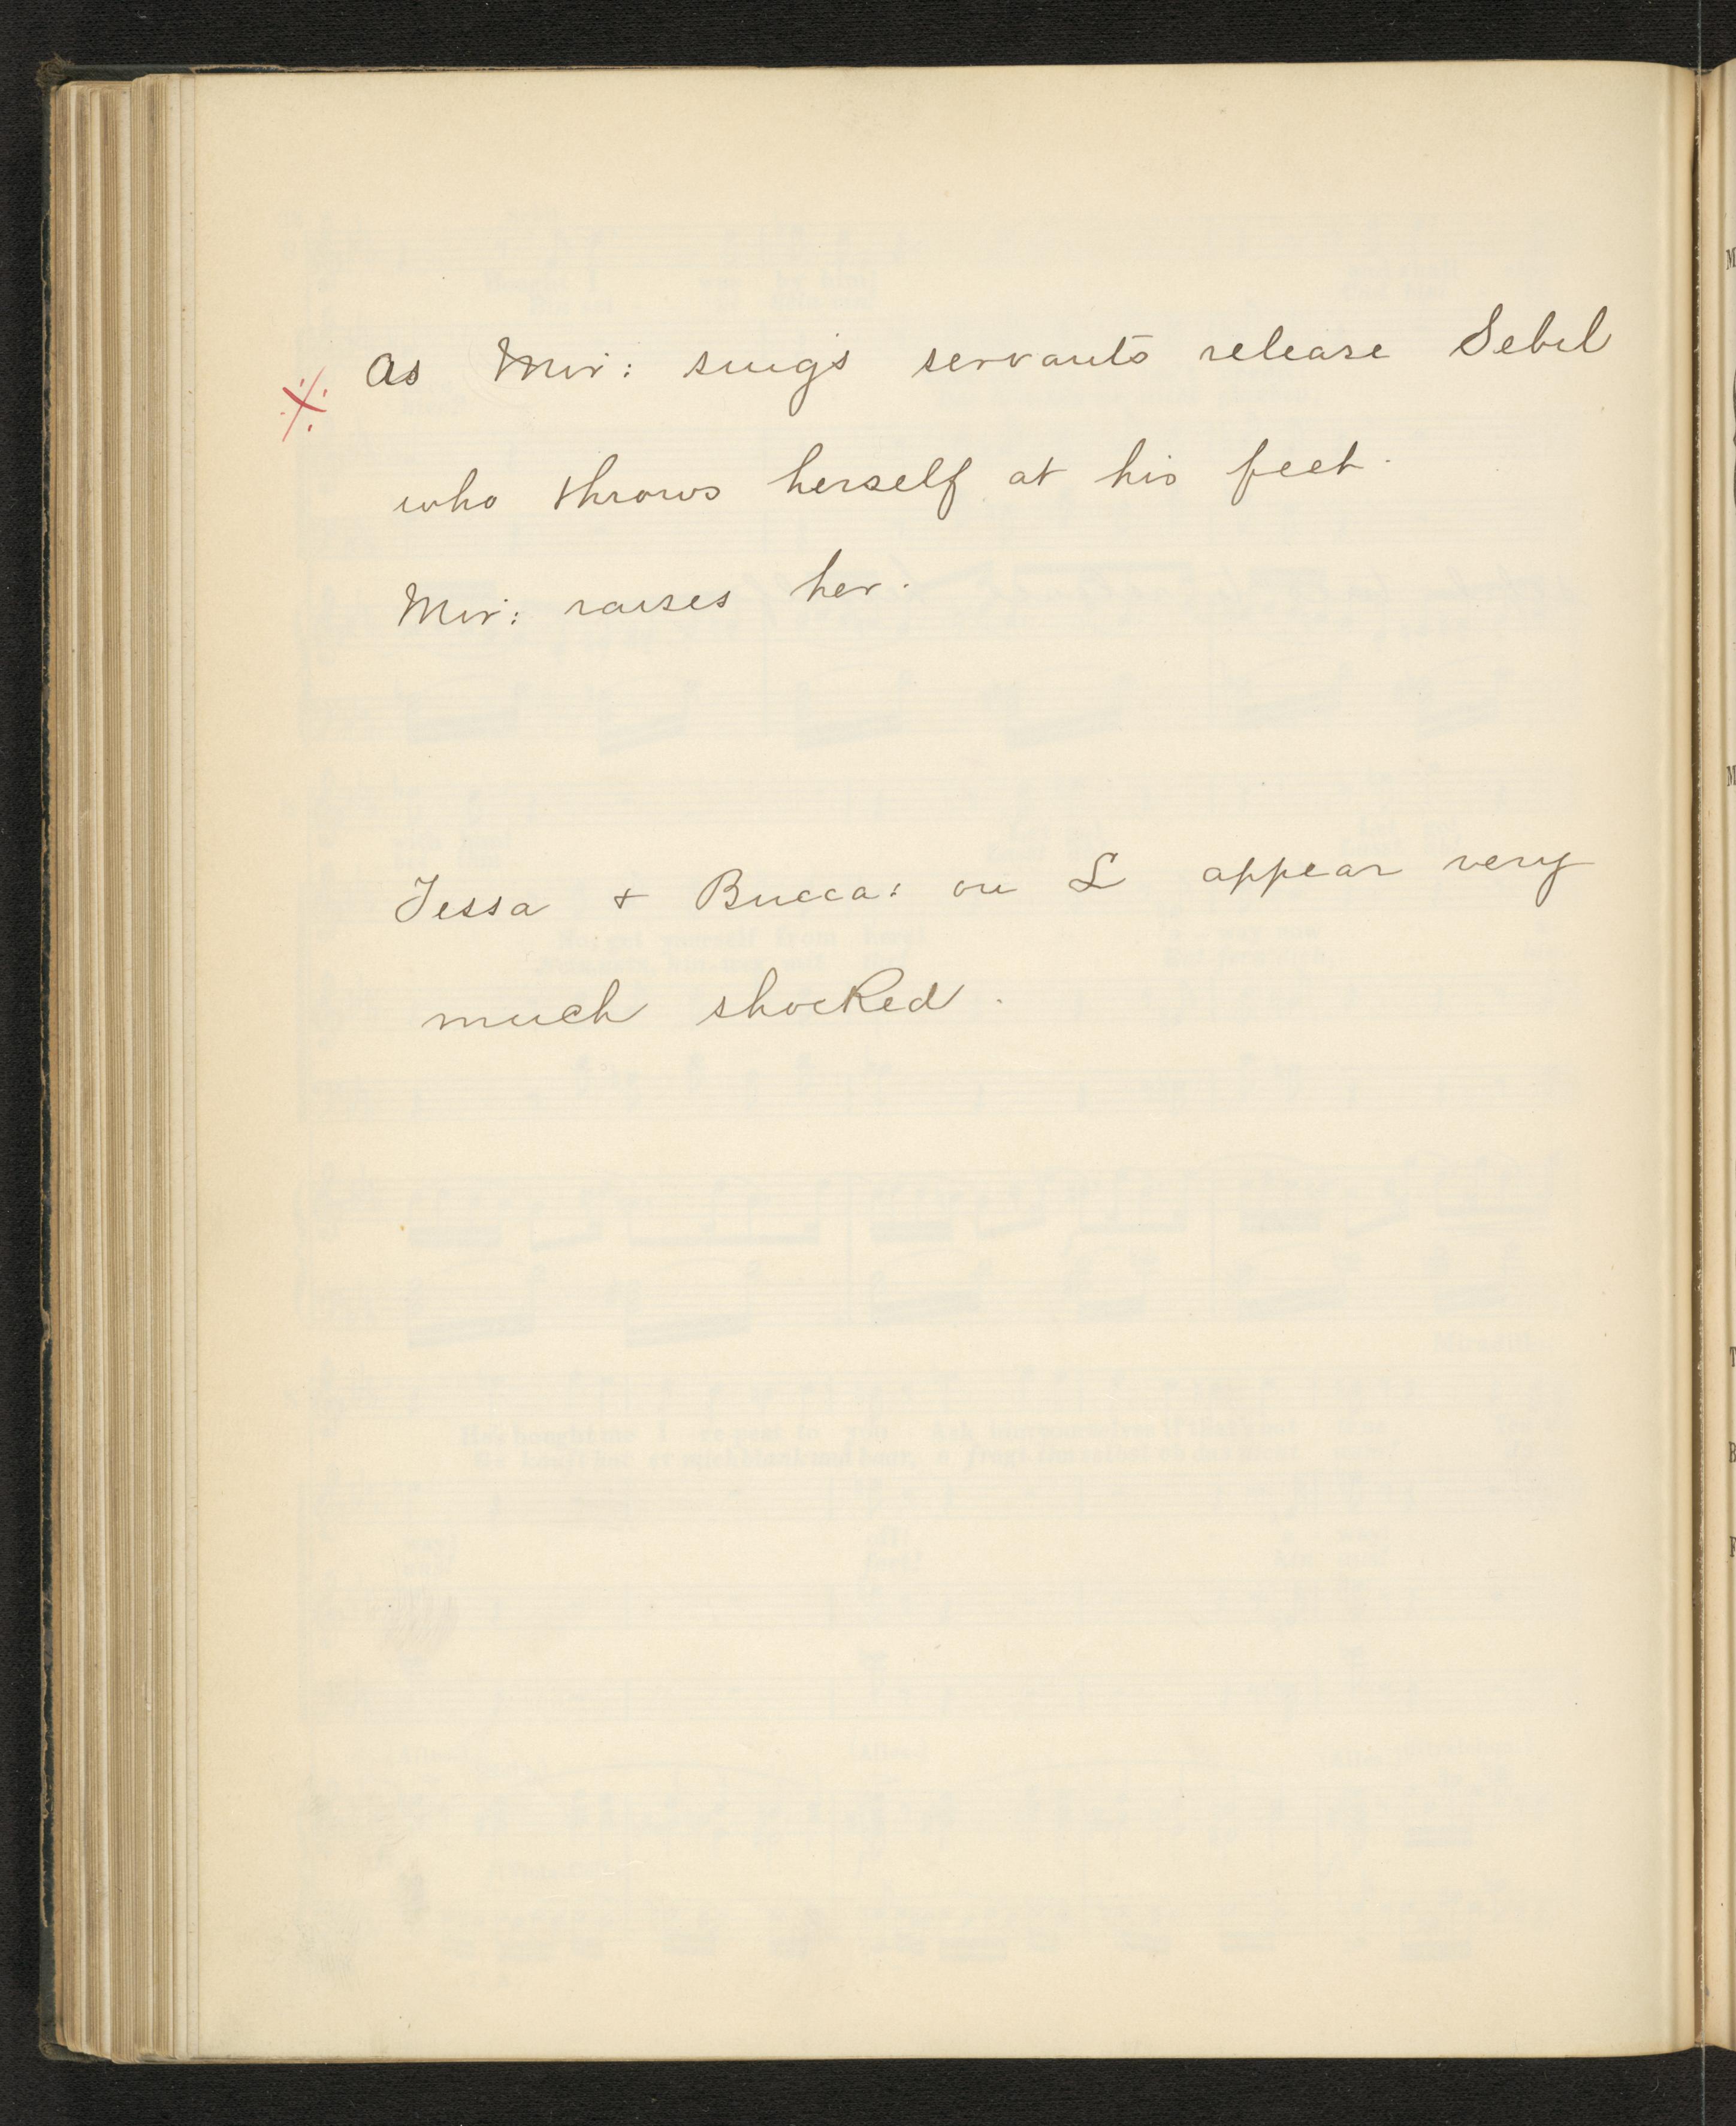 As Mir: sings servants release Sebil
who throws herself at his feet.
Mir: raises her.
Tessa + Bucca: on L appear very
much shocked.